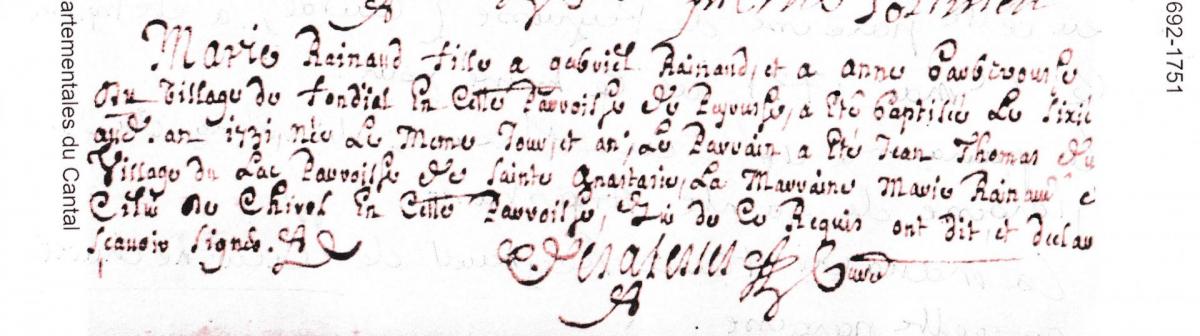 Marie Rainaud fille a gabriel Rainaud, et a anne
du Village de fondial En Cette Parroisse de Peyrusse, a été baptisée Le sixie
aud. an 1731, née Le Meme Jour, et an, Le Parrain a Eté Jean Thomas du
Village du Lac Parroisse de sainte Anastasie, La Marraine Marie Rainaud
de Chirol En Cette Parroisse, de Ce Requis ont dit, et declar
scavoir signer.
Curé
692-1751
artementales du Cantal